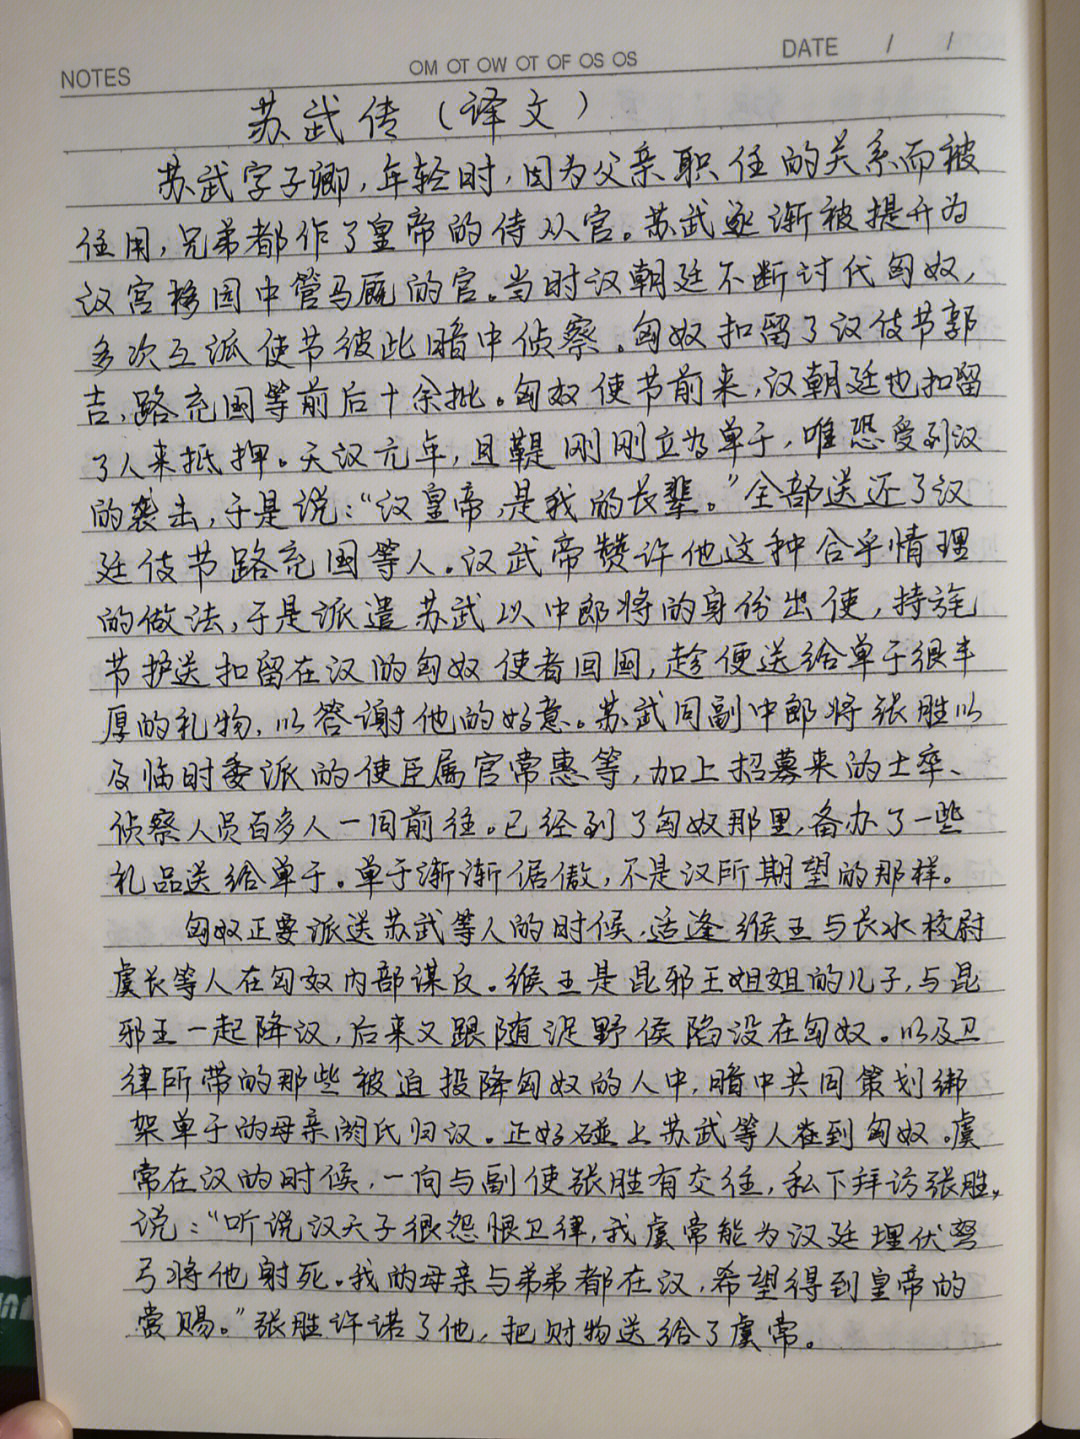 NOTES
OM OT OW OT OF OS OS
DATE / /
苏武传（译文）
苏武字子卿，年轻时，因为父亲职任的关系而被
任用，兄弟都作了皇帝的侍从官。苏武逐渐被提升为
汉宫移园中管马厩的官。当时汉朝廷不断讨代匈奴，
多次互派使节彼此暗中侦察。匈奴扣留了汉使节郭
吉，路充国等前后十余批。匈奴使节前来，汉朝廷也扣留
了人来抵押。天汉元年，且鞮刚刚立为单于，唯恐受到汉
的袭击，于是说：“汉皇帝，是我的长辈。”全部送还了汉
廷使节路充国等人。汉武帝赞许他这种合乎情理
的做法，于是派遣苏武以中郎将的身份出使，持旄
节护送扣留在汉的匈奴使者回国，趁便送给单于很丰
厚的礼物，以答谢他的好意。苏武同副中郎将张胜以
及临时委派的使臣属官常惠等，加上招募来的士卒、
侦察人员百多人一同前往。已经到了匈奴那里，备办了一些
礼品送给单于。单于渐渐倨傲，不是汉所期望的那样。
匈奴正要派送苏武等人的时候，适逢缑王与长水校尉
虞长等人在匈奴内部谋反。缑王是昆邪王姐姐的儿子，与昆
邪王一起降汉，后来又跟随浞野侯陷没在匈奴。以及卫
律所带的那些被迫投降匈奴的人中，暗中共同策划绑
架单于的母亲阏氏归汉。正好碰上苏武等人在到匈奴。虞
常在汉的时候，一向与副使张胜有交往，私下拜访张胜，
说：“听说汉天子很怨恨卫律，我虞常能为汉廷埋伏弩
弓将他射死。我的母亲与弟弟都在汉，希望得到皇帝的
赏赐。”张胜许诺了他，把财物送给了虞常。